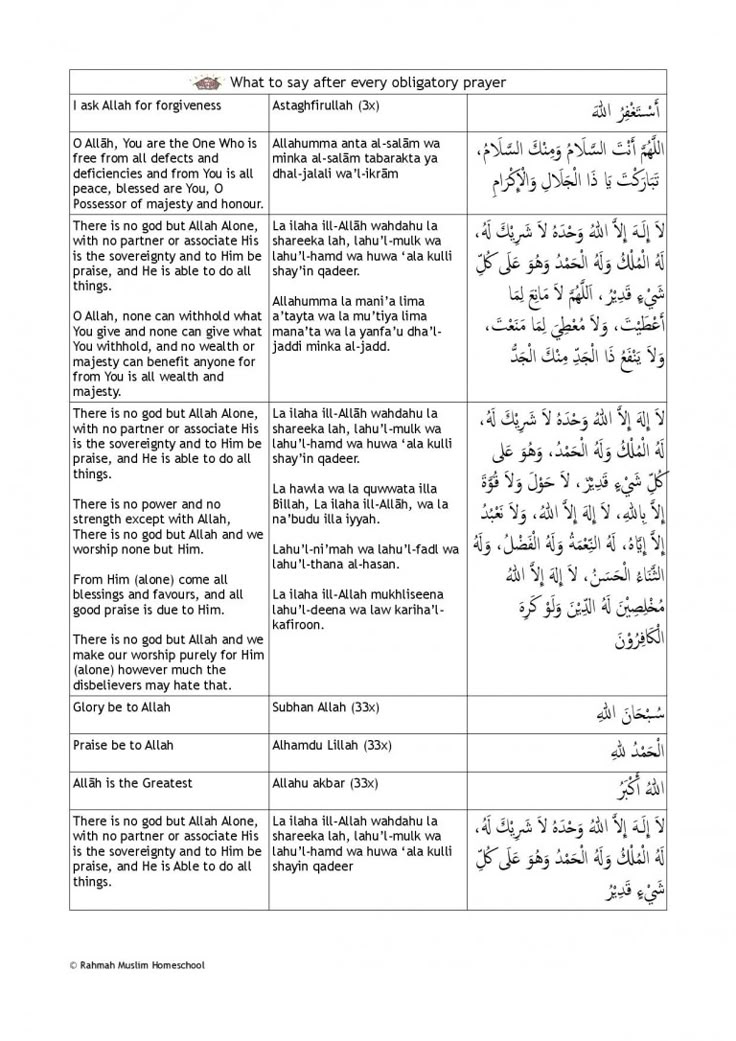 What to say after every obligatory prayer
I ask Allah for forgiveness
Astaghfirullah (3x)
أَسْتَغْفِرُ اللهَ
O Allāh, You are the One Who is
free from all defects and
deficiencies and from You is all
peace, blessed are You, O
Possessor of majesty and honour.
Allahumma anta al-salām wa
minka al-salām tabarakta ya
dhal-jalali wa’l-ikrām
اللَّهُمَّ أَنْتَ السَّلَامُ وَمِنْكَ السَّلَامُ،
تَبَارَكْتَ يَا ذَا الْجَلَالِ وَالْإِكْرَامِ
There is no god but Allah Alone,
with no partner or associate His
is the sovereignty and to Him be
praise, and He is able to do all
things.
O Allah, none can withhold what
You give and none can give what
You withhold, and no wealth or
majesty can benefit anyone for
from You is all wealth and
majesty.
La ilaha ill-Allāh wahdahu la
shareeka lah, lahu’l-mulk wa
lahu’l-hamd wa huwa ‘ala kulli
shay’in qadeer.
Allahumma la mani’a lima
a’tayta wa la mu’tiya lima
mana’ta wa la yanfa’u dha’l-
jaddi minka al-jadd.
لاَ إِلَهَ إِلاَّ اللهُ وَحْدَهُ لاَ شَرِيْكَ لَهُ،
لَهُ الْمُلْكُ وَلَهُ الْحَمْدُ وَهُوَ عَلَى كُلِّ
شَيْءٍ قَدِيْرُ، اَللَّهُمَّ لاَ مَانِعَ لِمَا
أَعْطَيْتَ، وَلاَ مُعْطِيَ لِمَا مَنَعْتَ،
وَلاَ يَنْفَعُ ذَا الْجَدِّ مِنْكَ الْجَدُّ
There is no god but Allah Alone,
with no partner or associate His
is the sovereignty and to Him be
praise, and He is able to do all
things.
There is no power and no
strength except with Allah,
There is no god but Allah and we
worship none but Him.
From Him (alone) come all
blessings and favours, and all
good praise is due to Him.
There is no god but Allah and we
make our worship purely for Him
(alone) however much the
disbelievers may hate that.
La ilaha ill-Allāh wahdahu la
shareeka lah, lahu’l-mulk wa
lahu’l-hamd wa huwa ‘ala kulli
shay’in qadeer.
La hawla wa la quwwata illa
Billah, La ilaha ill-Allāh, wa la
na’budu illa iyyah.
Lahu’l-ni’mah wa lahu’l-fadl wa
lahu’l-thana al-hasan.
La ilaha ill-Allah mukhliseena
lahu’l-deena wa law kariha’l-
kafiroon.
لاَ إِلَهَ إِلاَّ اللهُ وَحْدَهُ لاَ شَرِيْكَ لَهُ،
لَهُ الْمُلْكُ وَلَهُ الْحَمْدُ، وَهُوَ عَلَى
كُلِّ شَيْءٍ قَدِيْرٌ، لاَ حَوْلَ وَلاَ قُوَّةَ
إِلاَّ بِاللهِ، لاَ إِلَهَ إِلاَّ اللهُ، وَلاَ نَعْبُدُ
إِلاَّ إِيَّاهُ، لَهُ النِّعْمَةُ وَلَهُ الْفَضْلُ، وَلَهُ
الثَّنَاءُ الْحَسَنُ، لاَ إِلَهَ إِلاَّ اللهُ
مُخْلِصِيْنَ لَهُ الدِّيْنَ وَلَوْ كَرِهَ
الْكَافِرُوْنَ
Glory be to Allah
Subhan Allah (33x)
سُبْحَانَ اللهِ
Praise be to Allah
Alhamdu Lillah (33x)
الْحَمْدُ للهِ
Allāh is the Greatest
Allahu akbar (33x)
اللهُ أَكْبَرُ
There is no god but Allah Alone,
with no partner or associate His
is the sovereignty and to Him be
praise, and He is Able to do all
things.
La ilaha ill-Allāh wahdahu la
shareeka lah, lahu’l-mulk wa
lahu’l-hamd wa huwa ‘ala kulli
shayin qadeer
لاَ إِلَهَ إِلاَّ اللهُ وَحْدَهُ لاَ شَرِيْكَ لَهُ،
لَهُ الْمُلْكُ وَلَهُ الْحَمْدُ وَهُوَ عَلَى كُلِّ
شَيْءٍ قَدِيْرُ
© Rahmah Muslim Homeschool